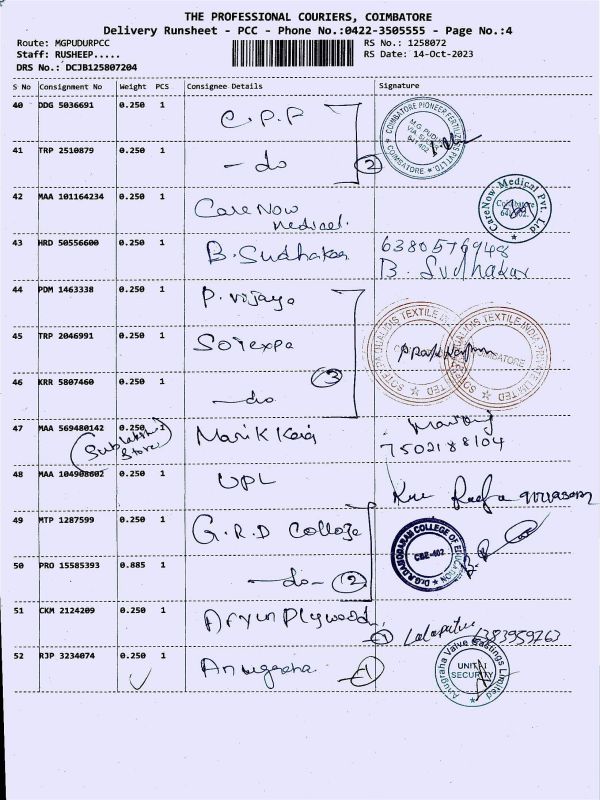 THE PROFESSIONAL COURIERS, COIMBATORE
Delivery Runsheet - PCC - Phone No.:0422-3505555 - Page No.:4
Route: MGPUDURPCC RS No.: 1258072
Staff: RUSHEEP..... RS Date: 14-Oct-2023
DRS No.: DCJB125807204
S No Consignment No Weight PCS Consignee Details Signature
40 DDG 5036691 0.250 1 C.P.F COIMBATORE PIONEER FERTILIZERS PVT LTD. COIMBATORE
M.G. PUDUR
641 402
41 TRP 2510879 0.250 1 - do 2
42 MAA 101164234 0.250 1 CareNow CareNow Medical Pvt. Ltd
Medical. Coimbatore
43 HRD 50556600 0.250 1 B. Sudhakar 6380576948
B. Sudhakar
44 PDM 1463338 0.250 1 P. Vijaya
45 TRP 2046991 0.250 1 COIMBATORE
46 KRR 5807460 0.250 1 - do 3
47 MAA 569480142 0.250 1 7502188104
Store
48 MAA 104908602 0.250 1 UPL
49 MTP 1287599 0.250 1 G.R.D College Dr.G.R.DAMODARAN COLLEGE OF EDUCATION
CBE-402
50 PRO 15585393 0.885 1 - do - 2
51 CKM 2124209 0.250 1 Plywood 1
52 RJP 3234074 0.250 1 Anugraha 1 Anugraha Valve Castings Limited
UNIT-I
SECURITY